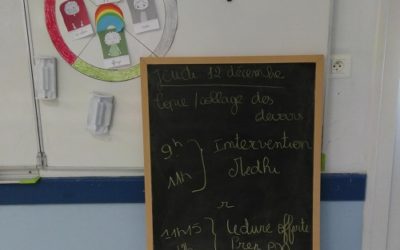 Jeudi 12 décembre
Copie / collage des
devoirs
9h
Intervention
Medhi
11h
r
11h15
Lecture offerte